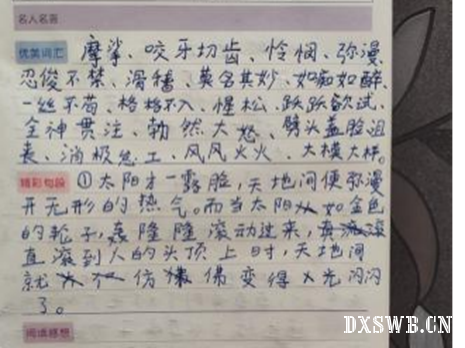 名人名言
优美词汇 摩挲、咬牙切齿、怜悯、弥漫
忍俊不禁、滑稽、莫名其妙、如痴如醉、
一丝不苟、格格不入、惺松、跃跃欲试、
全神贯注、勃然大怒、劈头盖脸诅
丧、消极怠工、风风火火、大模大样。
精彩句段 ①太阳才一露脸,天地间便弥漫
开无形的热气。而当太阳 如金色
的轮子,轰隆隆滚动过来,直滚
直滚到人的头顶上时,天地间
就 仿 佛变得 光闪闪
了。
阅读感想
DXSWB.CN